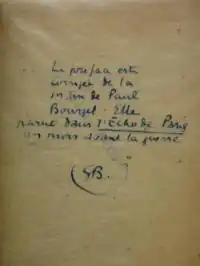 La preface est
corrigée de la
main de Paul
Bourget. Elle
parut dans l'Echo de Paris
un mois avant la guerre
GB.